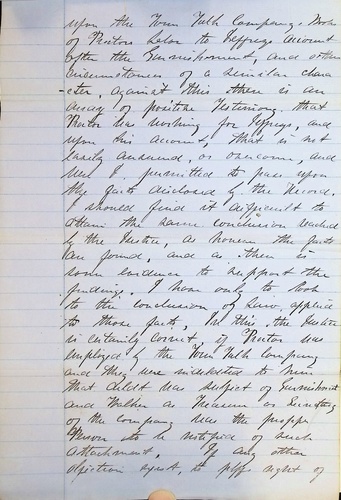 upon the Town Talk Company's Books
of Proctors Labor to Jeffreys Account
after the Garnishment, and other
circumstances of a similar chara-
-cter, against this there is an
array of positive testimony that
Proctor was working for Jeffreys, and
upon his account, that is not
easily answered, or overcome, and
were I permitted to pass upon
the facts disclosed by the Record,
I should find it difficult to
attain the same conclusion reached
by the Justice, as however the facts
are found, and as there is
some evidence to support the
findings, I have only to look
to the conclusion of Law, applied
to those facts, In this, the Justice
is certainly correct if Proctor was
employed by the Town Talk Company
and they were indebted to him
that debt was subject of Garnishment
and Walker as Treasurer or Secretary
of the company was the proper
Person to be notified of such
attachment. If any other
objection exist, to plffs right of